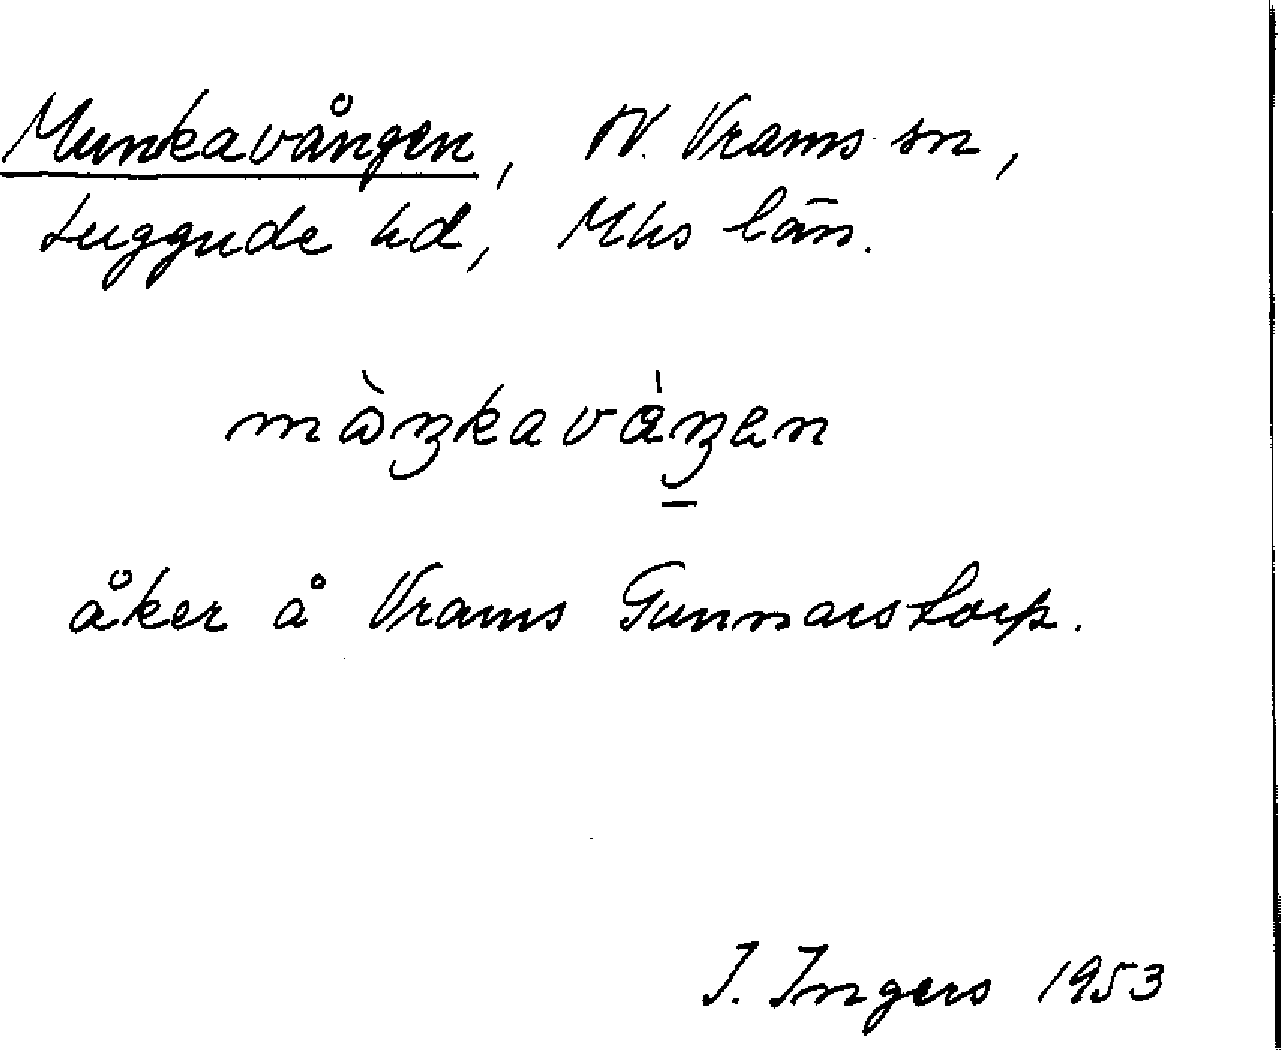 Munkavången, N. Vrams sn,
Luggude hd, Mhs län.
mòŋkavàŋen
åker å Vrams Gunnarstorp.
I. Ingers 1953